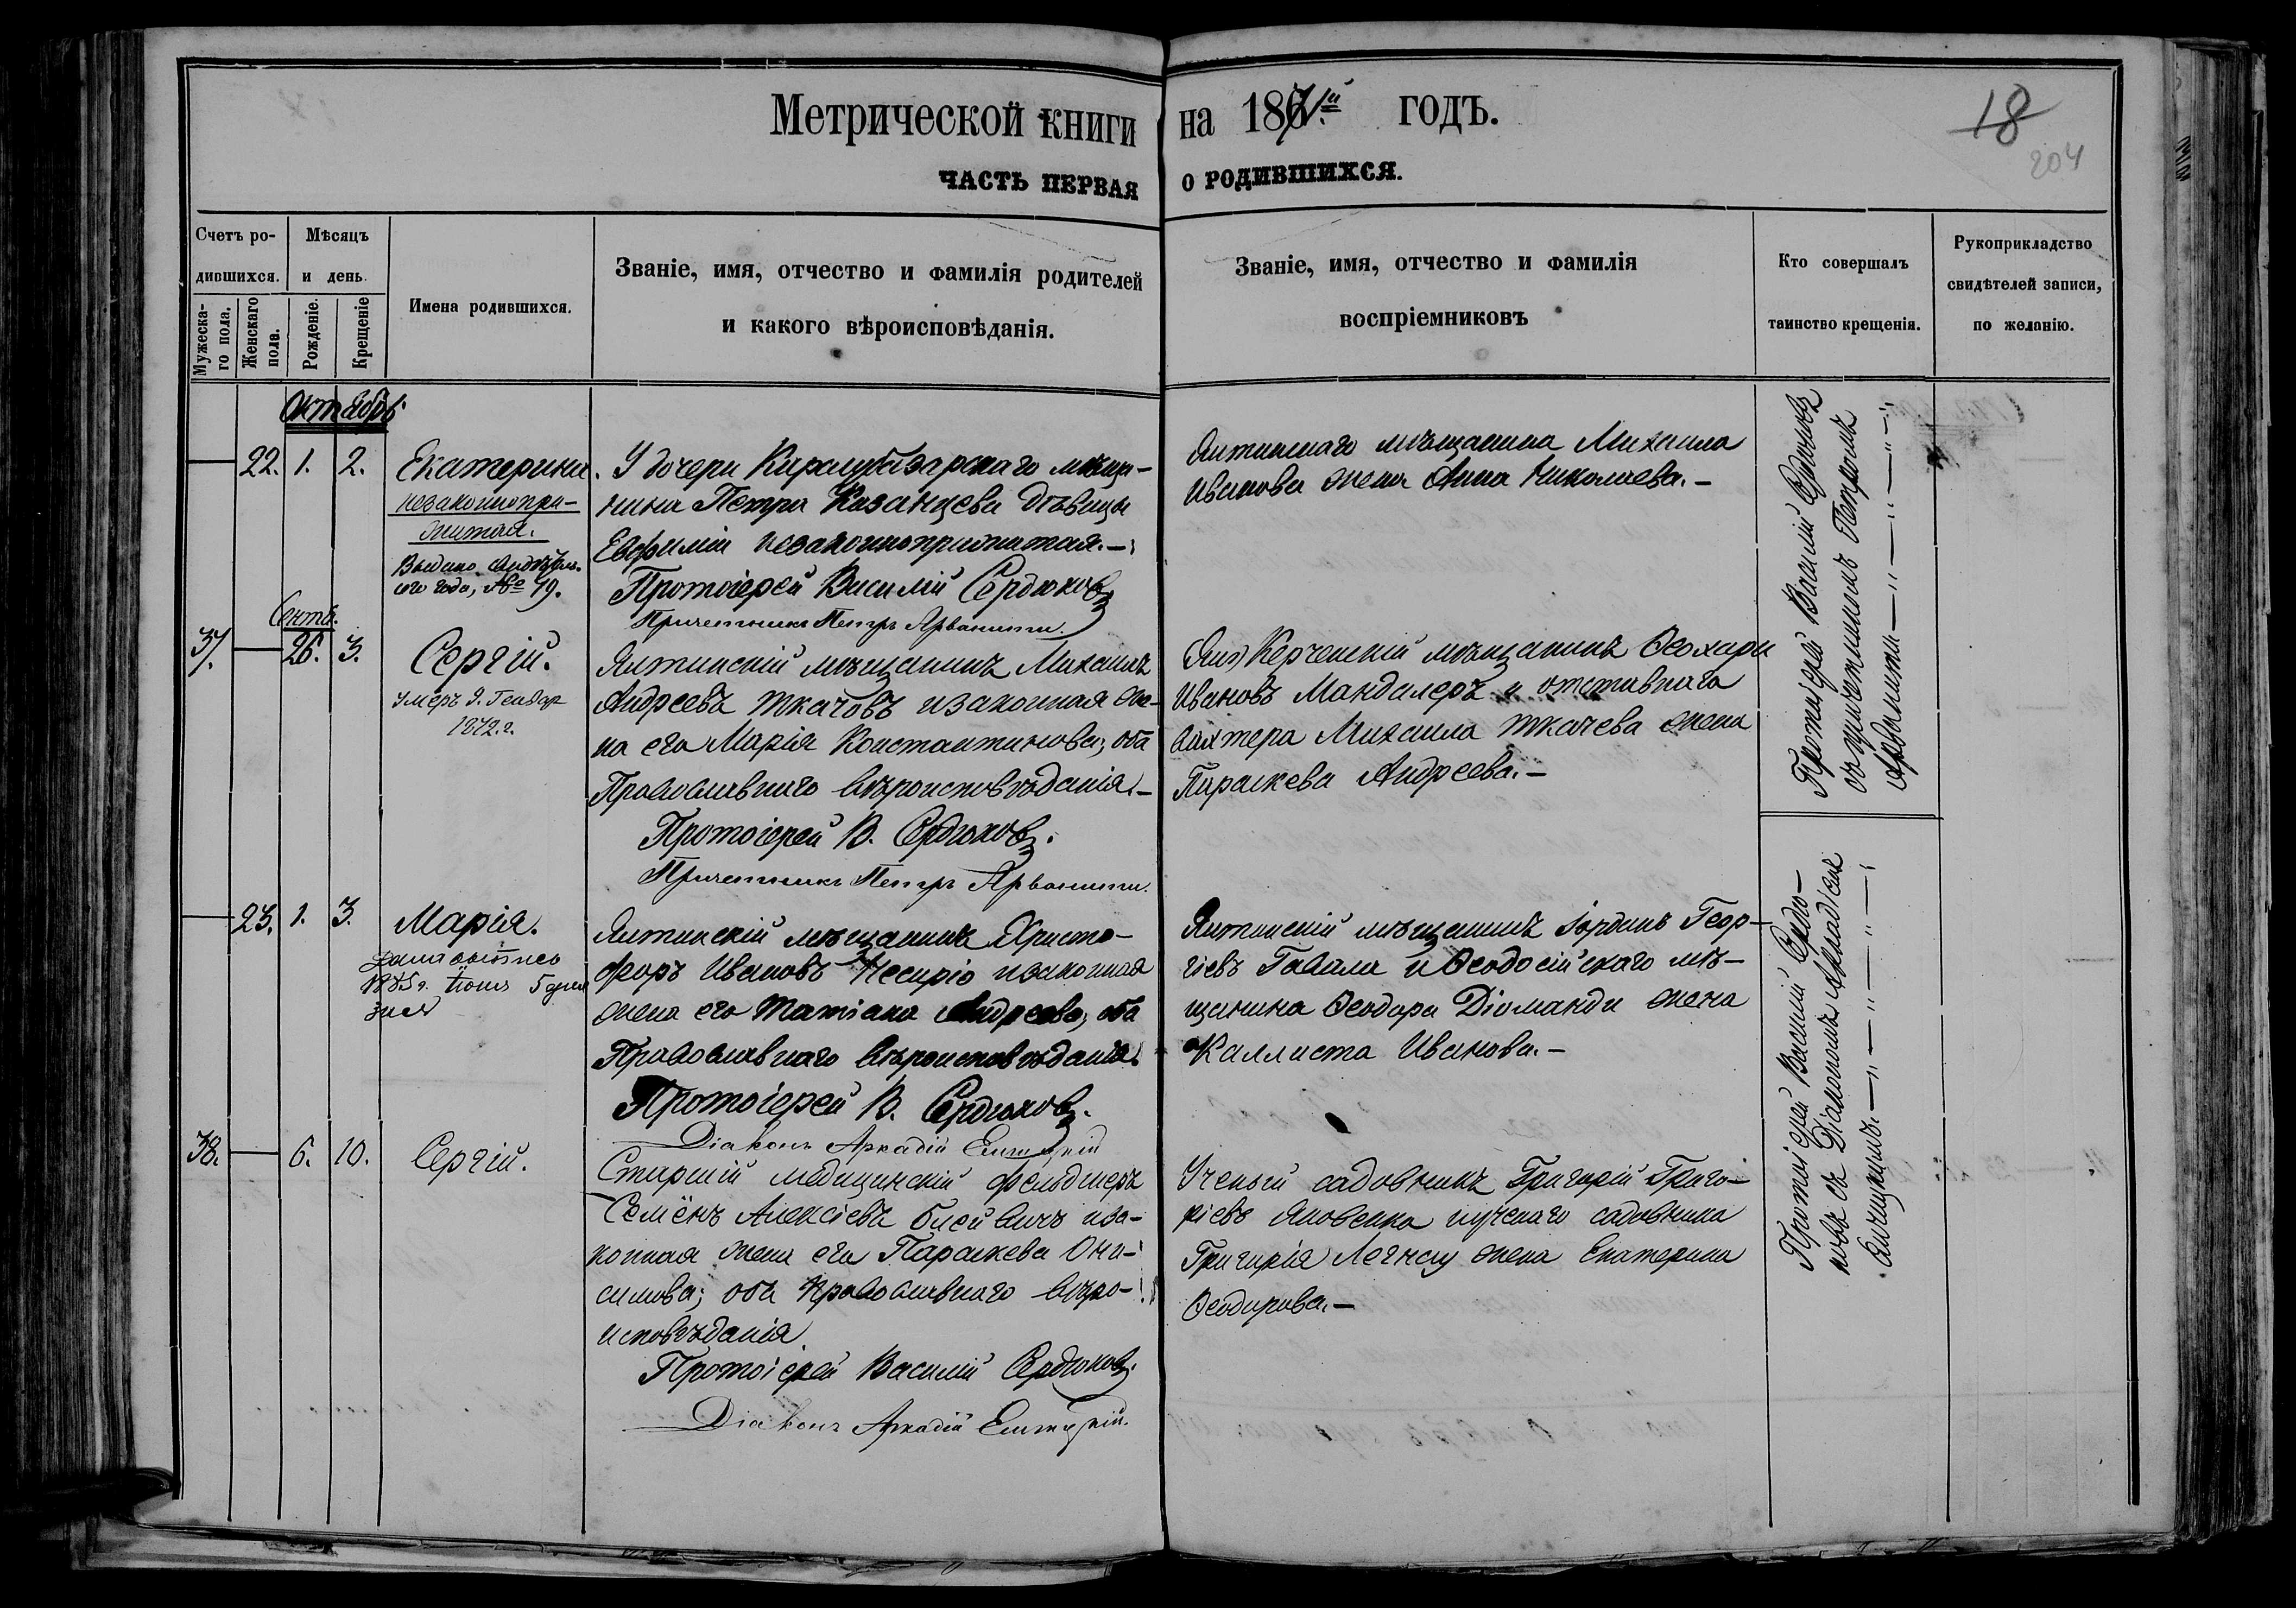 Метрической книги на 1871й годъ.
18
204
ЧАСТЬ ПЕРВАЯ О РОДИВШИХСЯ.
Счетъ ро-
дившихся.
Мужеска-
го пола.
Женскаго
пола.
Мѣсяцъ
и день.
Рожденіе.
Крещеніе
Имена родившихся.
Званіе, имя, отчество и фамилія родителей
и какого вѣроисповѣданія.
Званіе, имя, отчество и фамилія
воспріемниковъ
Кто совершалъ
таинство крещенія.
Рукоприкладство
свидѣтелей записи,
по желанію.
Октябрь
22. 1. 2.
Екатерина.
незаконнопри-
житая.
Выдано
сего года, № 19.
У дочери Карасубазарскаго мѣща-
нина Петра Казанцева дѣвицы
Евфиміи незаконноприжитая.—
Протоіерей Василій Сердюковъ
Причетникъ Петръ Арванити.
Ялтинскаго мѣщанина Михаила
Иванова жена Анна Николаева.—
Протоіерей Василій Сердюковъ
съ причетникомъ Петромъ
Арванити
Сентяб.
37. 26. 3.
Сергій.
умеръ 9. Генвар
1872.г.
Ялтинскій мѣщанинъ Михаилъ
Андреевъ Ткачовъ и законная же-
на его Марія Константинова; оба
Православнаго вѣроисповѣданія.—
Протоіерей В. Сердюковъ.
Причетникъ Петръ Арванити.
Керченскій мѣщанинъ Ѳеохари
Ивановъ Мандалеръ и отставнаго
вахтера Михаила Ткачева жена
Параскева Андреева.—
23. 1. 3.
Марія.
1885г. Іюня 5 дня
Ялтинскій мѣщанинъ Христо-
форъ Ивановъ Несиріо и законная
жена его Татіана Андреева, оба
Православнаго вѣроисповѣданія.
Протоіерей В. Сердюковъ.
Діаконъ Аркадій
Ялтинскій мѣщанинъ Іорданъ Геор-
гіевъ Гавала и Ѳеодосійскаго мѣ-
щанина Ѳеодора Діоманди жена
Каллиста Иванова.—
Протоіерей Василій Сердю-
ковъ съ Діакономъ Аркадіемъ
38. 6. 10.
Сергій.
Старшій медицинскій фельдшеръ
Семёнъ Алексіевъ и за-
конная жена его Параскева Они-
симова; оба Православнаго вѣро-
исповѣданія.
Протоіерей Василій Сердюковъ.
Діаконъ Аркадій
Ученый садовникъ Григорій Григо-
ріевъ Яковенко и ученаго садовника
Григорія жена Екатерина
Ѳеодорова.—